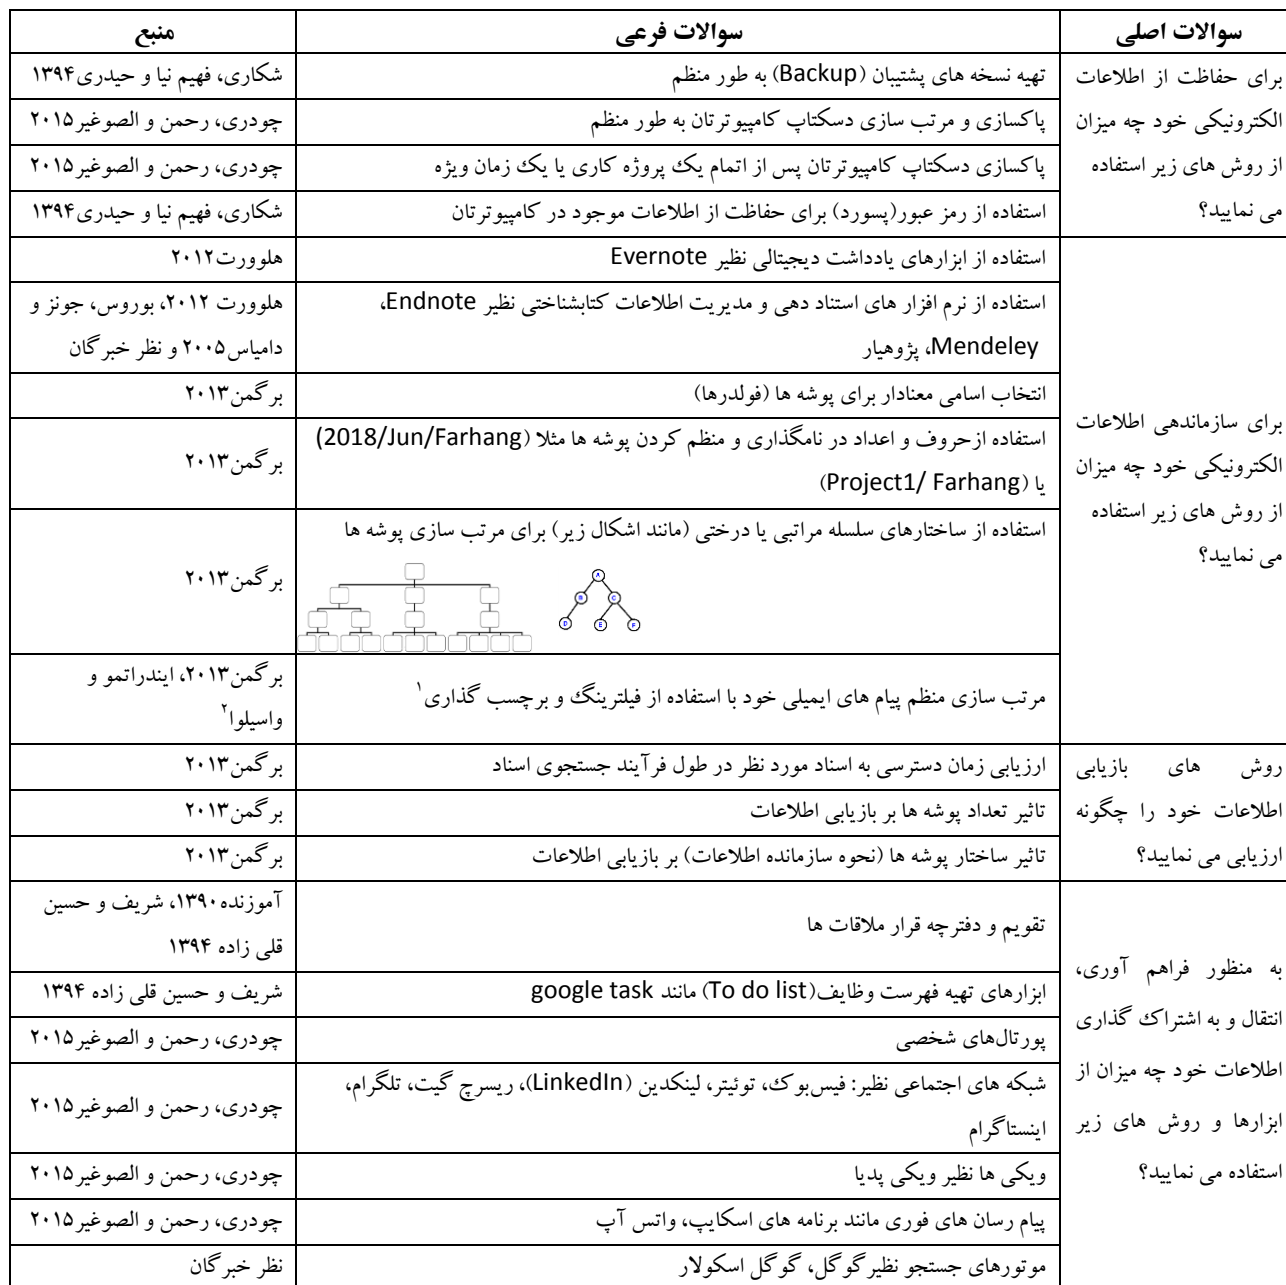 سوالات اصلی
سوالات فرعی
منبع
برای حفاظت از اطلاعات
الکترونیکی خود چه میزان
از روش های زیر استفاده
می نمایید؟
تهیه نسخه های پشتیبان (Backup) به طور منظم
شکاری، فهیم نیا و حیدری۱۳۹۴
پاکسازی و مرتب سازی دسکتاپ کامپیوترتان به طور منظم
چودری، رحمن و الصوغیر۲۰۱۵
پاکسازی دسکتاپ کامپیوترتان پس از اتمام یک پروژه کاری یا یک زمان ویژه
چودری، رحمن و الصوغیر۲۰۱۵
استفاده از رمز عبور(پسورد) برای حفاظت از اطلاعات موجود در کامپیوترتان
شکاری، فهیم نیا و حیدری۱۳۹۴
برای سازماندهی اطلاعات
الکترونیکی خود چه میزان
از روش های زیر استفاده
می نمایید؟
استفاده از ابزارهای یادداشت دیجیتالی نظیر Evernote
هلوورت۲۰۱۲
استفاده از نرم افزار های استناد دهی و مدیریت اطلاعات کتابشناختی نظیر Endnote،
Mendeley، پژوهیار
هلوورت ۲۰۱۲، بوروس، جونز و
دامیاس۲۰۰۵ و نظر خبرگان
انتخاب اسامی معنادار برای پوشه ها (فولدرها)
برگمن۲۰۱۳
استفاده ازحروف و اعداد در نامگذاری و منظم کردن پوشه ها مثلا (2018/Jun/Farhang)
یا (Project1/ Farhang)
برگمن۲۰۱۳
استفاده از ساختارهای سلسله مراتبی یا درختی (مانند اشکال زیر) برای مرتب سازی پوشه ها
A
B C
D E F
برگمن۲۰۱۳
مرتب سازی منظم پیام های ایمیلی خود با استفاده از فیلترینگ و برچسب گذاری۱
برگمن۲۰۱۳، ایندراتمو و
واسیلوا۲
روش های بازیابی
اطلاعات خود را چگونه
ارزیابی می نمایید؟
ارزیابی زمان دسترسی به اسناد مورد نظر در طول فرآیند جستجوی اسناد
برگمن۲۰۱۳
تاثیر تعداد پوشه ها بر بازیابی اطلاعات
برگمن۲۰۱۳
تاثیر ساختار پوشه ها (نحوه سازمانده اطلاعات) بر بازیابی اطلاعات
برگمن۲۰۱۳
به منظور فراهم آوری،
انتقال و به اشتراک گذاری
اطلاعات خود چه میزان از
ابزارها و روش های زیر
استفاده می نمایید؟
تقویم و دفترچه قرار ملاقات ها
آموزنده۱۳۹۰، شریف و حسین
قلی زاده ۱۳۹۴
ابزارهای تهیه فهرست وظایف(To do list) مانند google task
شریف و حسین قلی زاده ۱۳۹۴
پورتال‌های شخصی
چودری، رحمن و الصوغیر۲۰۱۵
شبکه های اجتماعی نظیر: فیس‌بوک، توئیتر، لینکدین (LinkedIn)، ریسرچ گیت، تلگرام،
اینستاگرام
چودری، رحمن و الصوغیر۲۰۱۵
ویکی ها نظیر ویکی پدیا
چودری، رحمن و الصوغیر۲۰۱۵
پیام رسان های فوری مانند برنامه های اسکایپ، واتس آپ
چودری، رحمن و الصوغیر۲۰۱۵
موتورهای جستجو نظیرگوگل، گوگل اسکولار
نظر خبرگان